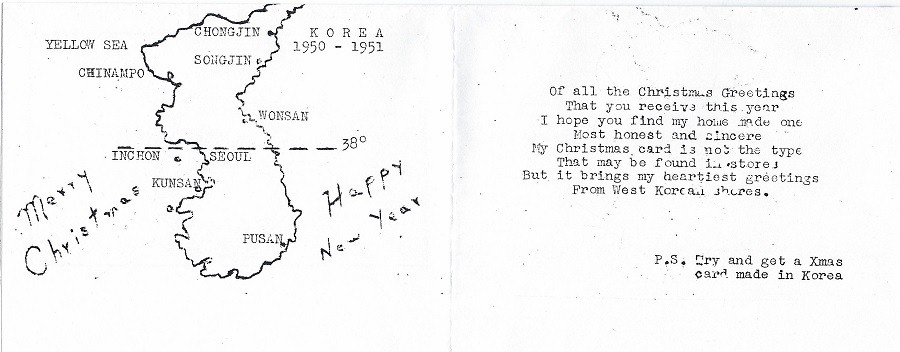 CHONGJIN
KOREA
1950 - 1951
YELLOW SEA
SONGJIN
CHINAMPO
WONSAN
38º
INCHON
SEOUL
KUNSAN
PUSAN
Merry
Christmas
Happy
New Year
Of all the Christmas Greetings
That you receive this year
I hope you find my home made one
Most honest and sincere
My Christmas card is not the type
That may be found in stores
But it brings my heartiest greetings
From West Korean shores.
P.S. Try and get a Xmas
card made in Korea